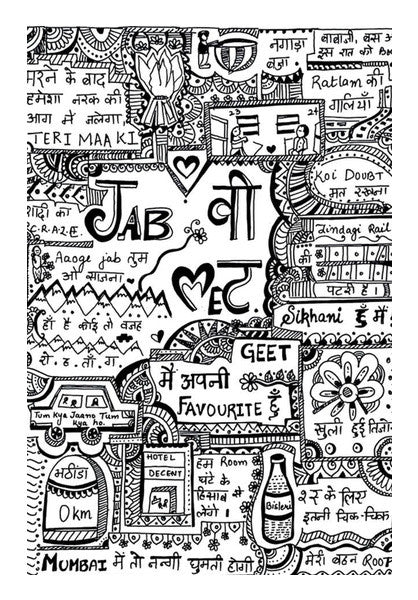 नगाड़ा
बजा
बाबाजी, बस अ
इस रात को BO
मरने के बाद
हमेशा नरक की
आग में जलेगा,
TERI MAA KI
Ratlam की
गलियाँ
23
24
JAB वी
MET.
Koi DOUBT
मत रखना
शादी का
C.R.A.Z.E.
Zindagi Rail
की
पटरी है।
Aaoge jab तुम
ओ साजना
Sikhani हूँ मैं
हाँ है कोई तो वजह
रो. ह. ताँ. ग
GEET
मैं अपनी
FAVOURITE हूँ
Tum Kya Jaano Tum
kya ho.
खुली हुई तिजो
HOTEL
DECENT
हम Room
घंटे के
हिसाब से
लेंगे।
भठींडा
0 km
Bisleri
इतनी चिक-चिक
के लिए
MUMBAI में तो नन्गी घुमती होगी
मेरी बहन ROOP